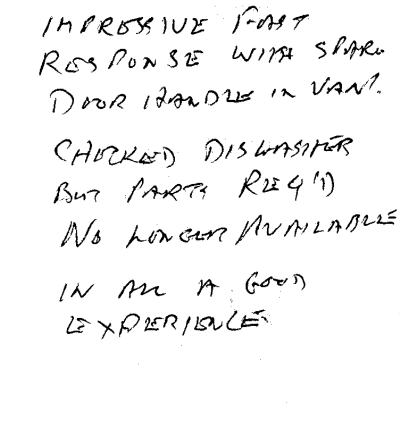 IMPRESSIVE FAST
RESPONSE WITH SPARE
DOOR HANDLE IN VAN!
CHECKED DISHWASHER
BUT PARTS REQ'D
NO LONGER AVAILABLE
IN ALL A GOOD
EXPERIENCE